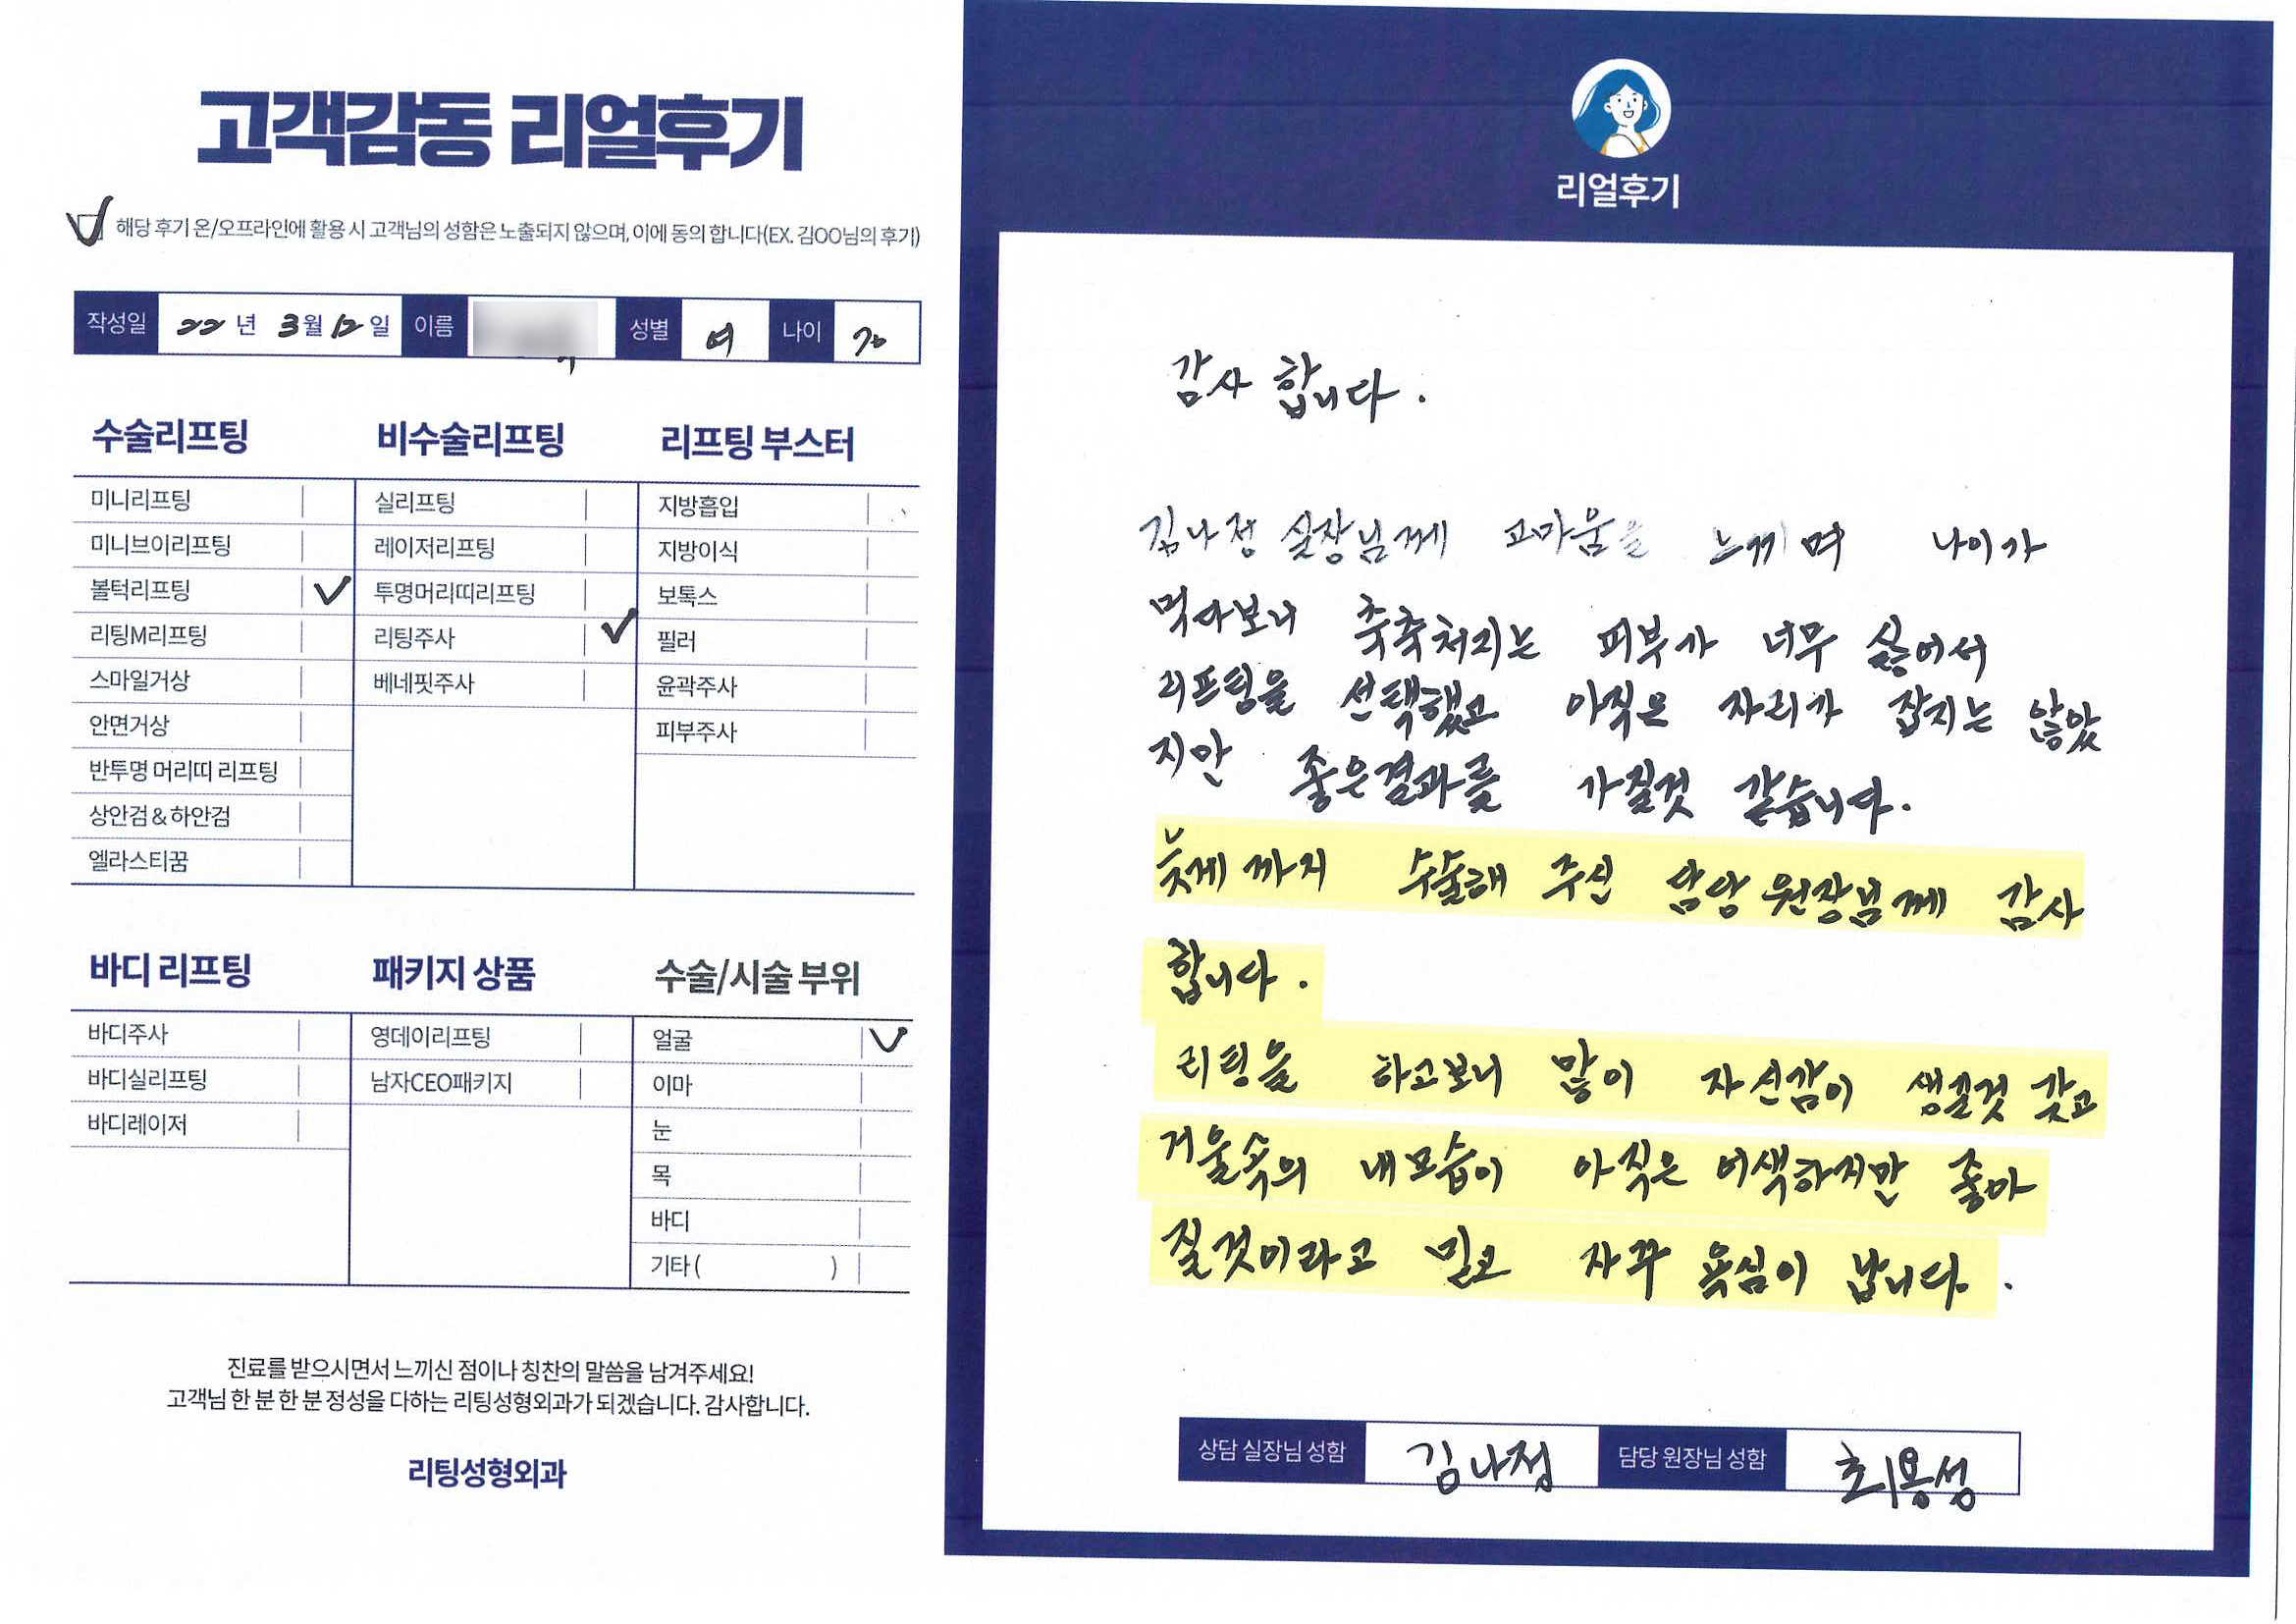 고객감동 리얼후기
해당 후기 온/오프라인에 활용 시 고객님의 성함은 노출되지 않으며, 이에 동의 합니다(EX. 김OO님의 후기)
작성일 22년 3월 12일 이름 성별 여 나이 70
수술리프팅
미니리프팅
미니브이리프팅
볼턱리프팅 ✓
리팅M리프팅
스마일거상
안면거상
반투명 머리띠 리프팅
상안검 & 하안검
엘라스티꿈
비수술리프팅
실리프팅
레이저리프팅
투명머리띠리프팅
리팅주사 ✓
베네핏주사
리프팅 부스터
지방흡입
지방이식
보톡스
필러
윤곽주사
피부주사
바디 리프팅
바디주사
바디실리프팅
바디레이저
패키지 상품
영데이리프팅
남자CEO패키지
수술/시술 부위
얼굴 ✓
이마
눈
목
바디
기타 ( )
진료를 받으시면서 느끼신 점이나 칭찬의 말씀을 남겨주세요!
고객님 한 분 한 분 정성을 다하는 리팅성형외과가 되겠습니다. 감사합니다.
리팅성형외과
리얼후기
감사 합니다.
김나정 실장님께 고마움을 느끼며 나이가
먹다보니 축축처지는 피부가 너무 싫어서
리프팅을 선택했고 아직은 자리가 잡지는 않았
지만 좋은결과를 가질것 같습니다.
늦게 까지 수술해 주신 담당 원장님께 감사
합니다.
리팅을 하고보니 많이 자신감이 생길것 같고
거울속의 내모습이 아직은 어색하지만 좋아
질것이라고 믿고 자꾸 욕심이 납니다.
상담 실장님 성함 김나정 담당 원장님 성함 최용성